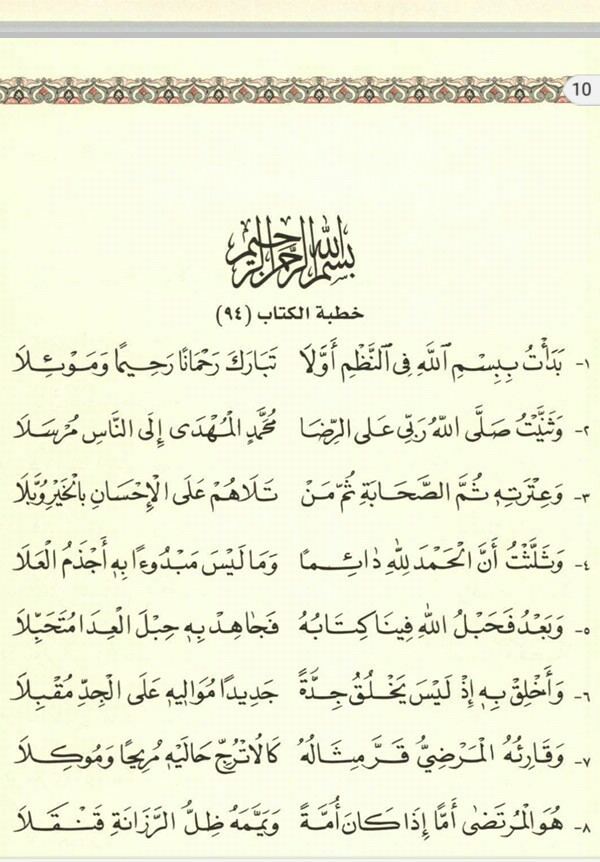 10
بسم الله الرحمن الرحيم
خطبة الكتاب (٩٤)
١- بَدَأْتُ بِبِسْمِ ٱللَّهِ فِى ٱلنَّظْمِ أَوَّلَا تَبَارَكَ رَحْمَانًا رَحِيمًا وَمَوْئِلَا
٢- وَثَنَّيْتُ صَلَّى اللَّهُ رَبِّي عَلَى الرِّضَا مُحَمَّدٍ الْمُهْدَى إِلَى النَّاسِ مُرْسَلَا
٣- وَعِتْرَتِهِ ثُمَّ الصَّحَابَةِ ثُمَّ مَنْ تَلَاهُمْ عَلَى الْإِحْسَانِ بِالْخَيْرِ وُبَّلَا
٤- وَثَلَّثْتُ أَنَّ الْحَمْدَ لِلَّهِ دَائِمًا وَمَا لَيْسَ مَبْدُوءًا بِهِ أَجْذَمُ الْعَلَا
٥- وَبَعْدُ فَحَبْلُ اللَّهِ فِينَا كِتَابُهُ فَجَاهِدْ بِهِ حِبْلَ الْعِدَا مُتَحَبِّلَا
٦- وَأَخْلِقْ بِهِ إِذْ لَيْسَ يَخْلُقُ جِدَّةً جَدِيدًا مُوَالِيهِ عَلَى الْجِدِّ مُقْبِلَا
٧- وَقَارِئُهُ الْمَرْضِيُّ قَرَّ مِثَالُهُ كَالُاتْرُجِّ حَالَيْهِ مُرِيحًا وَمُوكِلَا
٨- هُوَ الْمُرْتَضَى أَمًّا إِذَا كَانَ أُمَّةً وَيَمَّمَهُ ظِلُّ الرَّزَانَةِ قَنْقَلَا